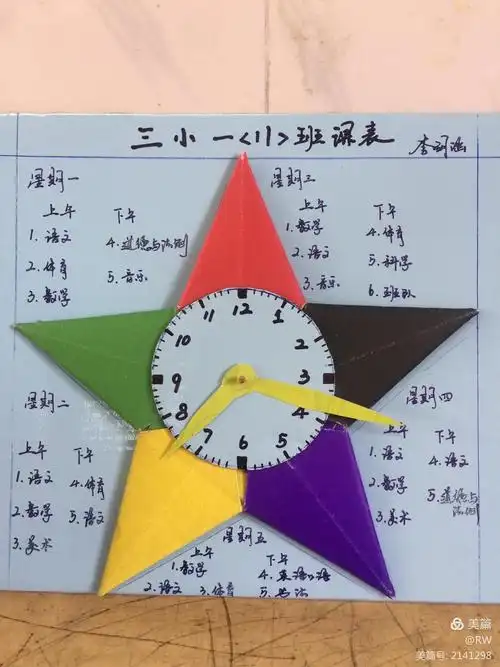 三小一<11>班课表
李
星期一
上午 下午
1.语文 4.道德与法则
2.体育 5.音乐
3.数学
星期三
上午 下午
1.数学 4.体育
2.语文 5.科学
3.音乐 6.班队
12
1
2
3
4
5
6
7
8
9
10
11
星期二
上午 下午
1.语文 4.体育
2.数学 5.语文
3.美术
星期四
上午 下午
1.语文 4.语文
2.数学 5.道德与法则
3.美术
星期五
上午 下午
1.数学 4.英语口语
2.语文 3.体育 5.书法
美篇
@RW
美篇号: 2141298